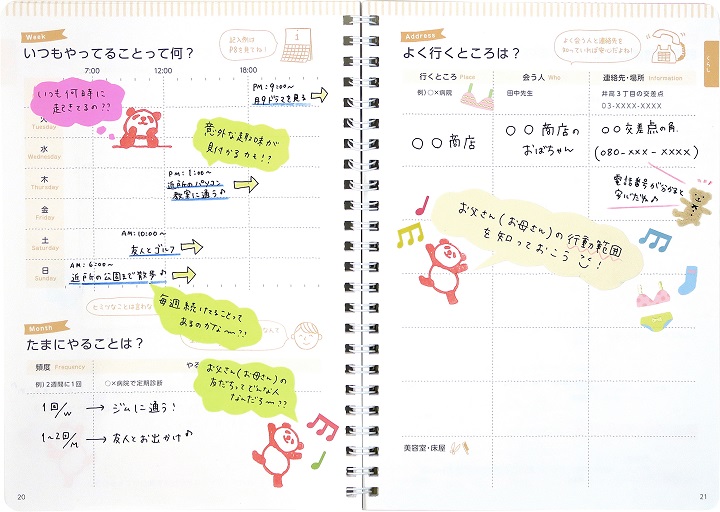 Week
いつもやってることって何？
記入例は
P8を見てね！
1
7:00
12:00
18:00
PM:9:00〜
月9ドラマを見る
いつも何時に
起きてるの??
火
Tuesday
意外な趣味が
見付かるかも!?
水
Wednesday
木
Thursday
PM:1:00〜
近所のパソコン
教室に通う♪
金
Friday
土
Saturday
AM:10:00〜
友人とゴルフ
日
Sunday
AM:6:00〜
近所の公園まで散歩♪
ヒミツなことは言わな
毎週続いてることって
あるのかな〜?!
Month
たまにやることは？
頻度 Frequency
や
例) 2週間に1回
○×病院で定期診断
お父さん(お母さん)の
友だちってどんな人
なんだろ〜??
1回/W → ジムに通う！
1〜2回/M → 友人とお出かけ♪
20
Address
よく行くところは？
よく会う人と連絡先も
知っていれば安心だよね！
くらし
行くところ Place
会う人 Who
連絡先・場所 Information
例) ○×病院
田中先生
井高3丁目の交差点
03-XXXX-XXXX
○○商店
○○商店の
おばちゃん
○○交差点の角
(080-xxx-xxxx)
電話番号が分かると
安心だね♪
お父さん(お母さん)の行動範囲
を知っておこう！
美容室・床屋
21